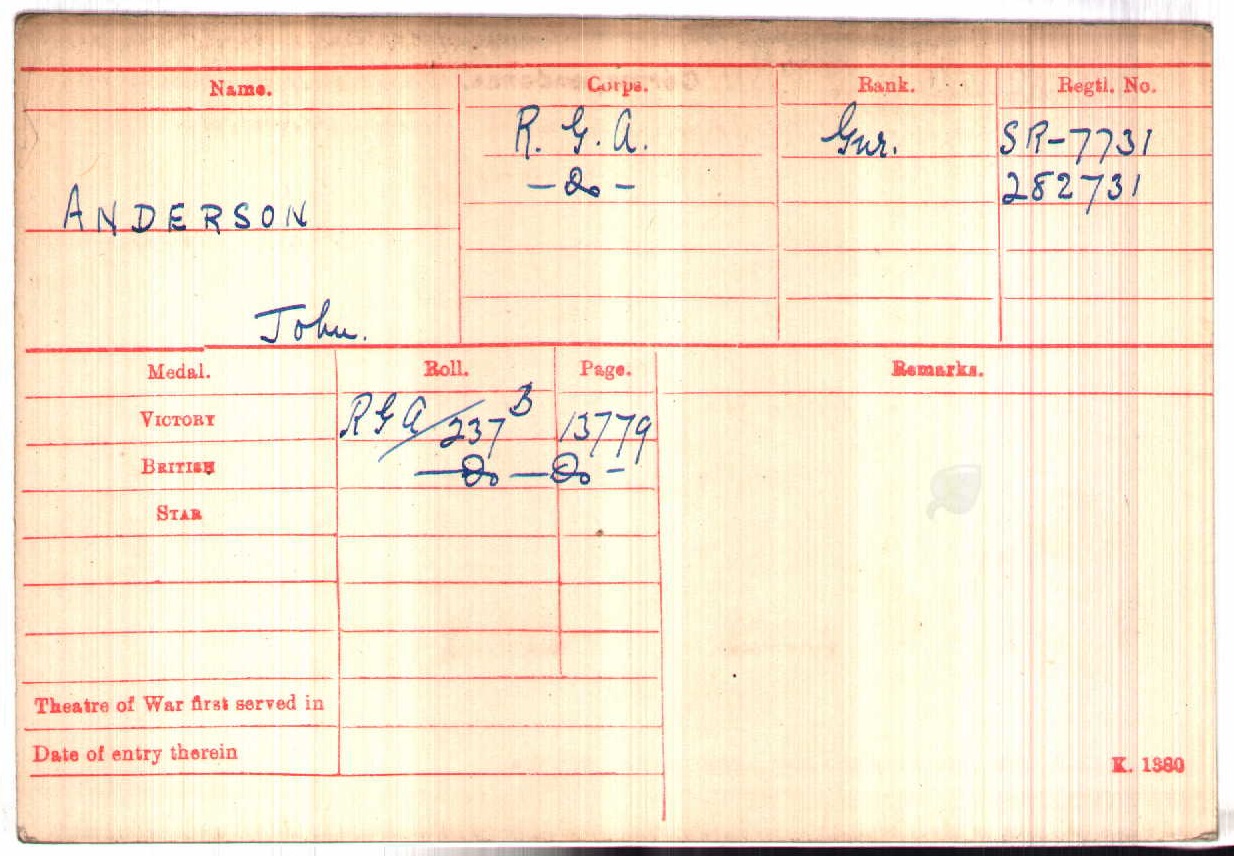 Name. Corps. Rank. Regtl. No.
R. G. A. Gnr. SR-7731
- Do - 282731
ANDERSON
John.
Medal. Roll. Page. Remarks.
VICTORY RGA/237B 13779
BRITISH - Do - Do -
STAR
Theatre of War first served in
Date of entry therein
K. 1380